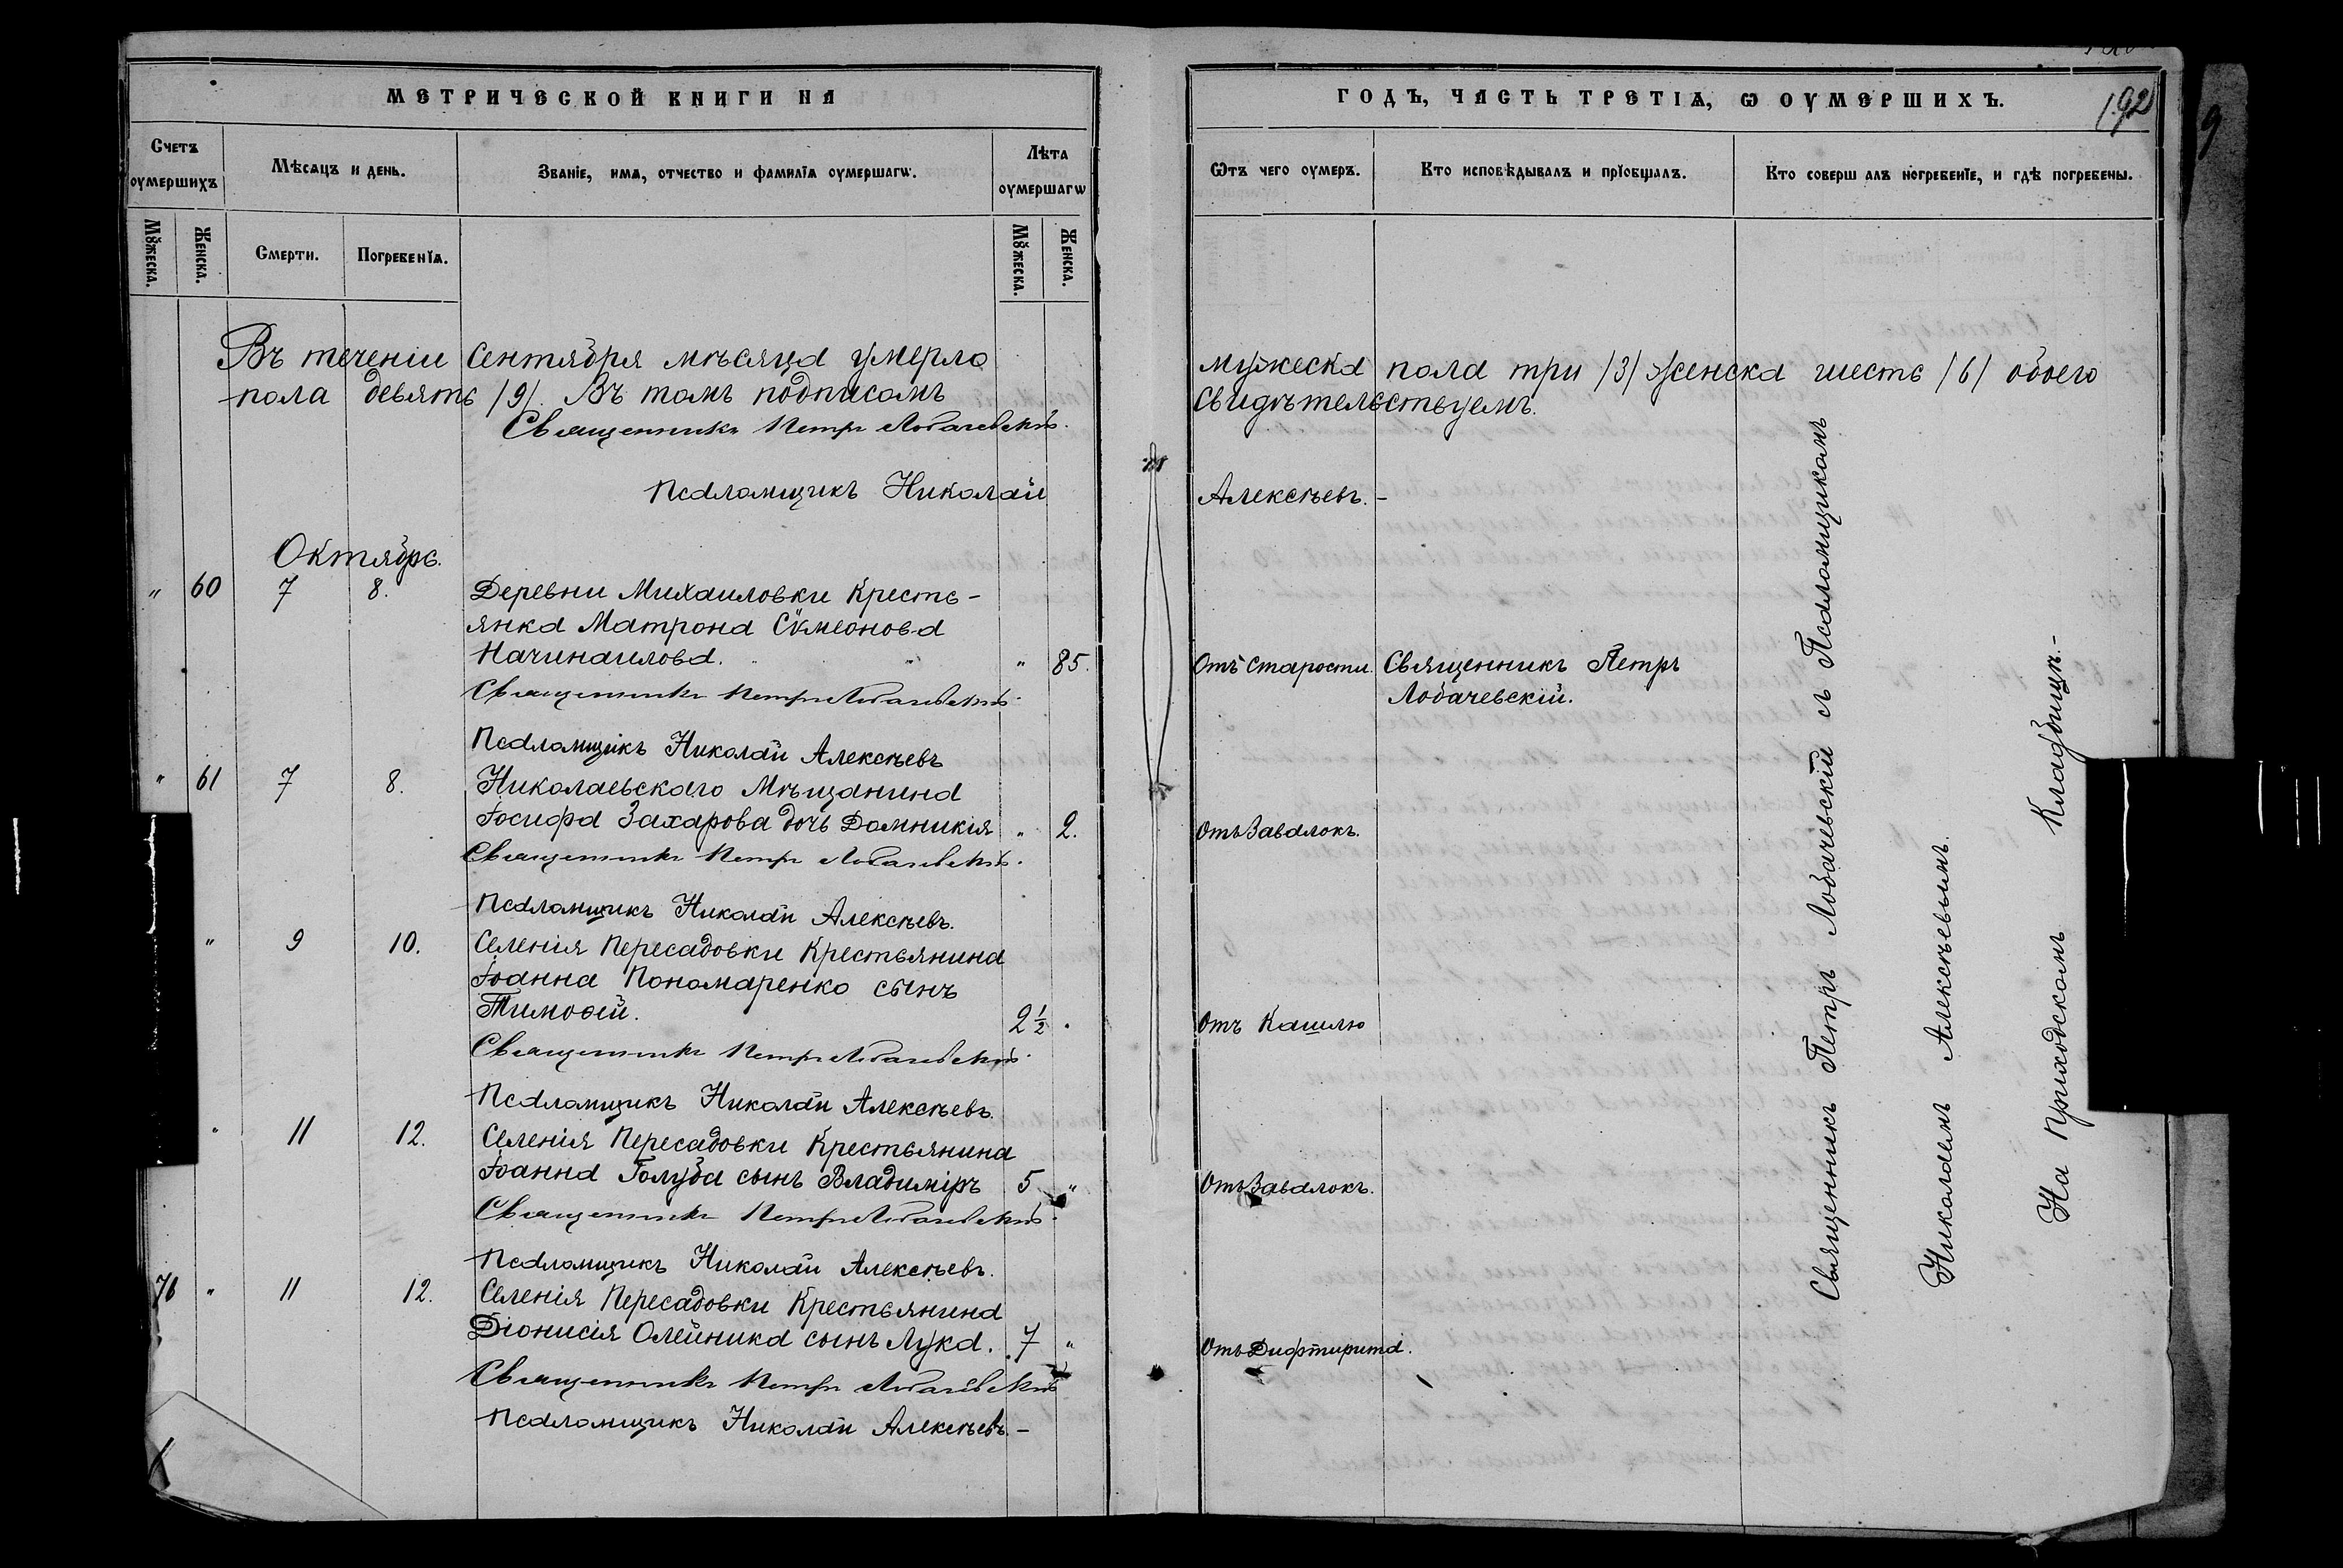 МЕТРИЧЕСКОЙ КНИГИ НА
ГОДЪ, ЧАСТЬ ТРЕТІѦ, Ѡ ОУМЕРШИХЪ.
192
Счетъ оумершихъ
Мѣсѧцъ и день.
Званіе, имѧ, отчество и фамиліѧ оумершагѡ.
Лѣта оумершагѡ
Ѿтъ чего оумеръ.
Кто исповѣдывалъ и прїобщалъ.
Кто совершалъ погребенїе, и гдѣ погребены.
Мꙋжеска.
Женска.
Смерти.
Погребенїѧ.
Мꙋжеска.
Женска.
Въ теченіи Сентября мѣсяца умерло мужеска пола три /3/ женска шесть /6/ обоего
пола девять /9/. Въ томъ подписомъ свидѣтельствуемъ.
Священникъ Петръ Лобачевскій.
Псаломщикъ Николай Алексѣевъ. -
Октябрь.
" 60 7 8. Деревни Михаиловки Кресть-
янка Матрона Сѵмеонова
Начинаилова. " 85. Отъ старости Священникъ Петръ
Священникъ Петръ Лобачевскій. Лобачевскій.
Псаломщикъ Николай Алексѣевъ
" 61 7 8. Николаевскаго Мѣщанина
Іосифа Захарова дочь Домникія " 2. Отъ Завалокъ.
Священникъ Петръ Лобачевскій.
Псаломщикъ Николай Алексѣевъ.
" 9 10. Селенія Пересадовки Крестьянина
Іоанна Пономаренко сынъ
Тимоѳей. 2½ . Отъ Кашлю
Священникъ Петръ Лобачевскій.
Псаломщикъ Николай Алексѣевъ.
" 11 12. Селенія Пересадовки Крестьянина
Іоанна Голуба сынъ Владиміръ 5 " Отъ Завалокъ.
Священникъ Петръ Лобачевскій.
Псаломщикъ Николай Алексѣевъ.
76 " 11 12. Селенія Пересадовки Крестьянина
Діонисія Олейника сынъ Лука. 7 " Отъ Дифтирита.
Священникъ Петръ Лобачевскій
Псаломщикъ Николай Алексѣевъ. -
Священникъ Петръ Лобачевскій съ Псаломщикомъ
Николаемъ Алексѣевымъ
На приходскомъ Кладбищѣ. -
9